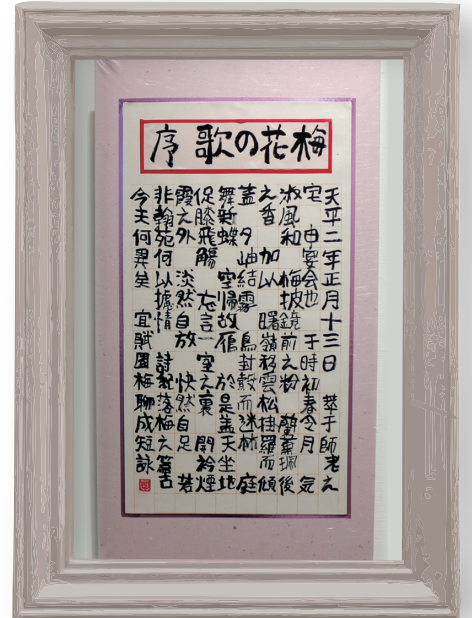 梅花の歌 序
天平二年正月十三日 萃于師老之
宅 申宴会也 于時初春令月 気
淑風和 梅披鏡前之粉 蘭薫珮後
之香 加以 曙嶺移雲 松掛羅而傾
蓋 夕岫結霧 鳥封縠而迷林 庭
舞新蝶 空帰故雁 於是蓋天坐地
促膝飛觴 忘言一室之裏 開衿煙
霞之外 淡然自放 快然自足 若
非翰苑何以攄情 詩紀落梅之篇古
今夫何異矣 宜賦園梅聊成短詠